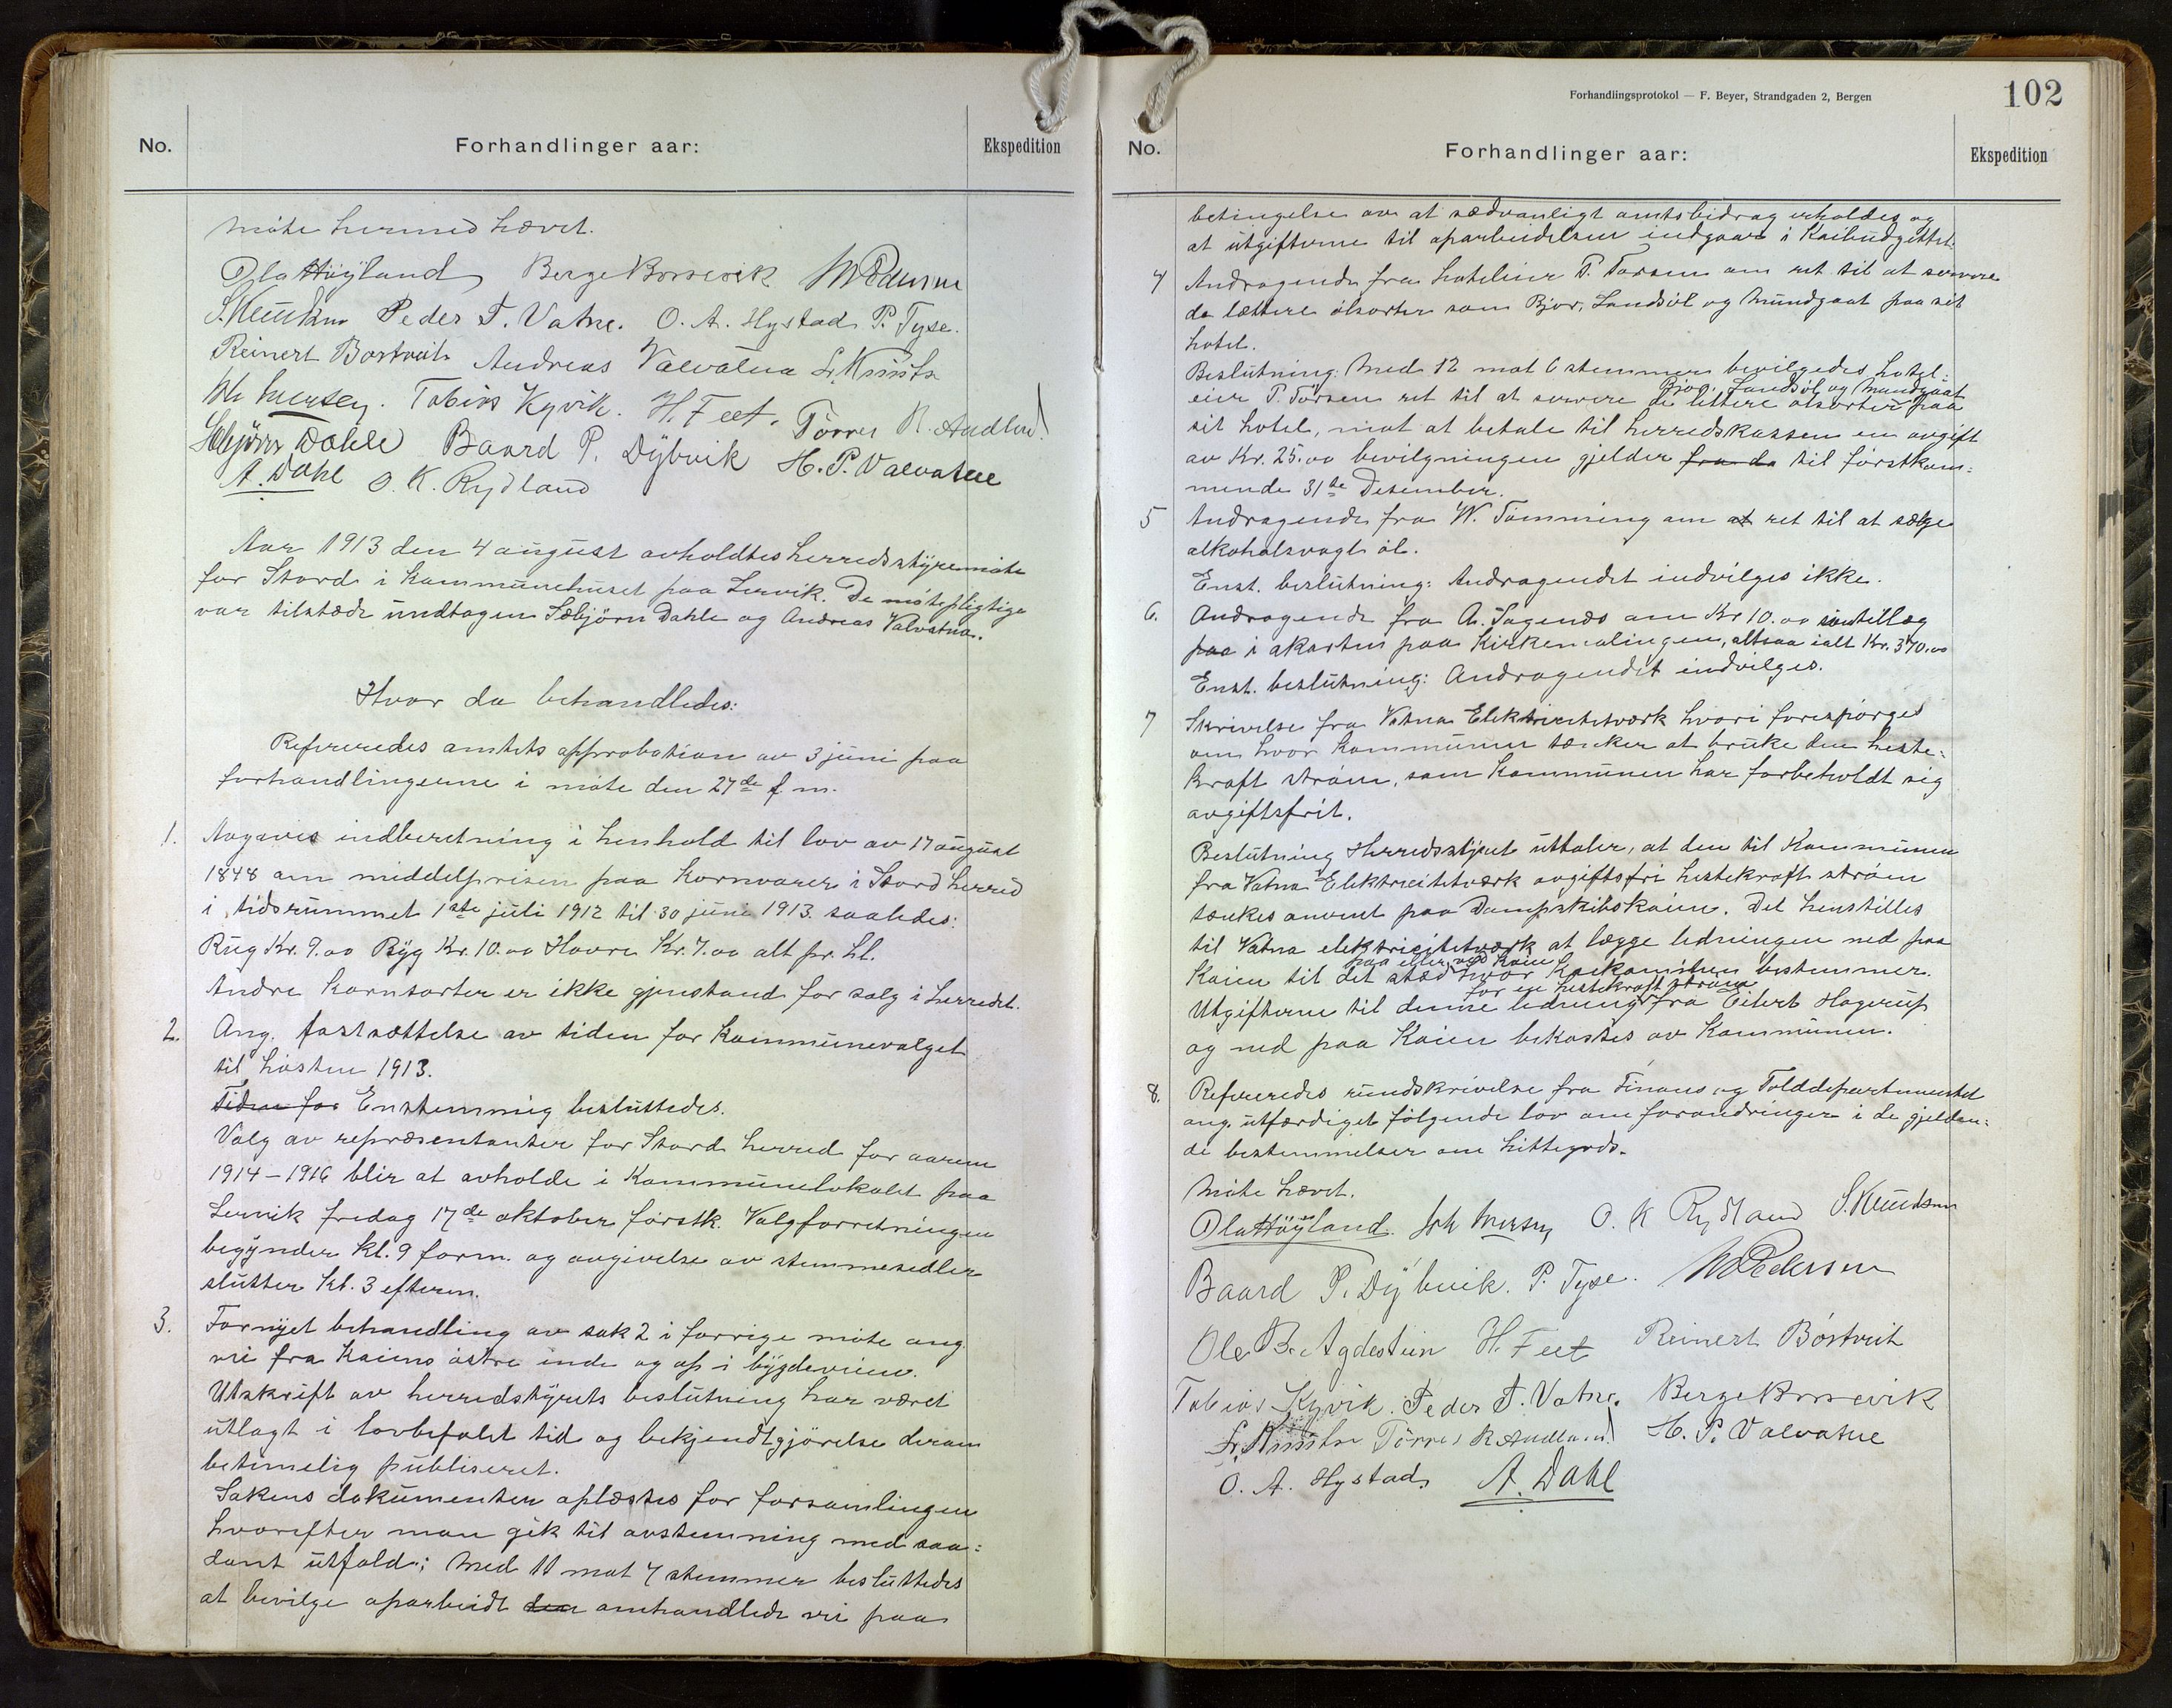 No.
Forhandlinger aar:
Ekspedition
Møte hermed hævet.
Ola Høyland Berge Borsevik M Pedersen
S. Knutsen Peder T. Vatne. O. A. Hystad P. Tyse.
Reinert Børtveit Andreas Valvatna
Tobias Kyvik. H. Feet. Tørres R. Andland
Sæbjørn Dahle Baard P. Dybvik H. P. Valvatne
A. Dahl O. K. Rydland
Aar 1913 den 4 august avholdtes herredsstyremøte
for Stord i kommunehuset paa Lervik. De møtepligtige
var tilstæde undtagen Sæbjørn Dahle og Andreas Valvatna.
Hvor da behandledes:
Refereredes amtets approbation av 3 juni paa
forhandlingerne i møte den 27de f. m.
1. Avgaves indberetning i henhold til lov av 17 august
1848 om middelprisen paa kornvarer i Stord herred
i tidsrummet 1ste juli 1912 til 30 juni 1913 saaledes:
Rug Kr. 9.00 Byg Kr. 10.00 Havre Kr. 7.00 alt pr. hl.
Andre kornsorter er ikke gjenstand for salg i herredet.
2. Ang. fastsættelse av tiden for kommunevalget
til høsten 1913.
Tiden for Enstemmig besluttedes.
Valg av repræsentanter for Stord herred for aarene
1914 – 1916 blir at avholde i Kommunelokalet paa
Lervik fredag 17de oktober førstk. Valgforretningen
begynder kl. 9 form. og avgivelse av stemmesedler
slutter kl. 3 efterm.
3. Fornyet behandling av sak 2 i forrige møte ang
vei fra kaiens østre ende og op i bygdeveien.
Utskrift av herredstyrets beslutning har været
utlagt i lovbefalet tid og bekjendtgjørelse derom
betimelig publiseret.
Sakens dokumenter oplæstes for forsamlingen
hvorefter man gik til avstemning med saa=
dant utfald: Med 11 mot 7 stemmer besluttedes
at bevilge oparbeidt den omhandlede vei paa
Forhandlingsprotokol — F. Beyer, Strandgaden 2, Bergen
102
No.
Forhandlinger aar:
Ekspedition
betingelse av at sædvanligt amtsbidrag erholdes og
at utgifterne til oparbeidelsen indgaar i Kaibudgettet.
4 Andragende fra hoteleier P. Torsen om ret til at servere
de lettere ølsorter som Bjor, Landsøl og Mundgaat paa sit
hotel.
Beslutning: Med 12 mot 6 stemmer bevilgedes hotel=
Bjor, Landsøl og Mundgaat
eier P. Torsen ret til at servere de lettere ølsorter paa
sit hotel, mot at betale til herredskassen en avgift
av Kr. 25.00 bevilgningen gjelder fra da til førstkom=
mende 31te Desember.
5 Andragende fra W. Tømming om at ret til at sælge
alkoholsvagt øl.
Enst. beslutning: Andragendet indvilges ikke.
6. Andragende fra A. Sagends om Kr 10.00 som tillæg
paa i akorten paa Kirkemalingen, altsaa ialt Kr. 370.00
Enst. beslutning: Andragendet indvilges.
7 Skrivelse fra Vatna Elektricitetsværk hvori forespørges
om hvor kommunen tænker at bruke den heste=
kraft strøm, som kommunen har forbeholdt sig
avgiftsfrit.
Beslutning Herredsstyret uttaler, at den til Kommunen
fra Vatna Elektricitetværk avgiftsfri hestekraft strøm
tænkes anvent paa Dampskibskaien. Det henstilles
til Vatna elektricitetværk at lægge ledningen ned paa
paa eller ved kaien
Kaien til det sted hvor Kaikomiteen bestemmer.
for en hestekraft strøm
Utgifterne til denne ledning fra Eilert Hagerup
og ned paa Kaien bekostes av Kommunen.
8. Refereredes rundskrivelse fra Finans og Tolddepartementet
ang. utfærdiget følgende lov om forandringer i de gjelden=
de bestemmelser om hittegods.
Møte hævet.
Ola Høyland. O. K Rydland S. Knudsen
Baard P. Dybvik. P. Tyse. M Pedersen
Ole B. Agdestein H. Feet Reinert Børtveit
Tobias Kyvik. Peder T. Vatne. Berge Borsevik
Tørres R Andland H. P. Valvatne
O. A. Hystad. A. Dahl